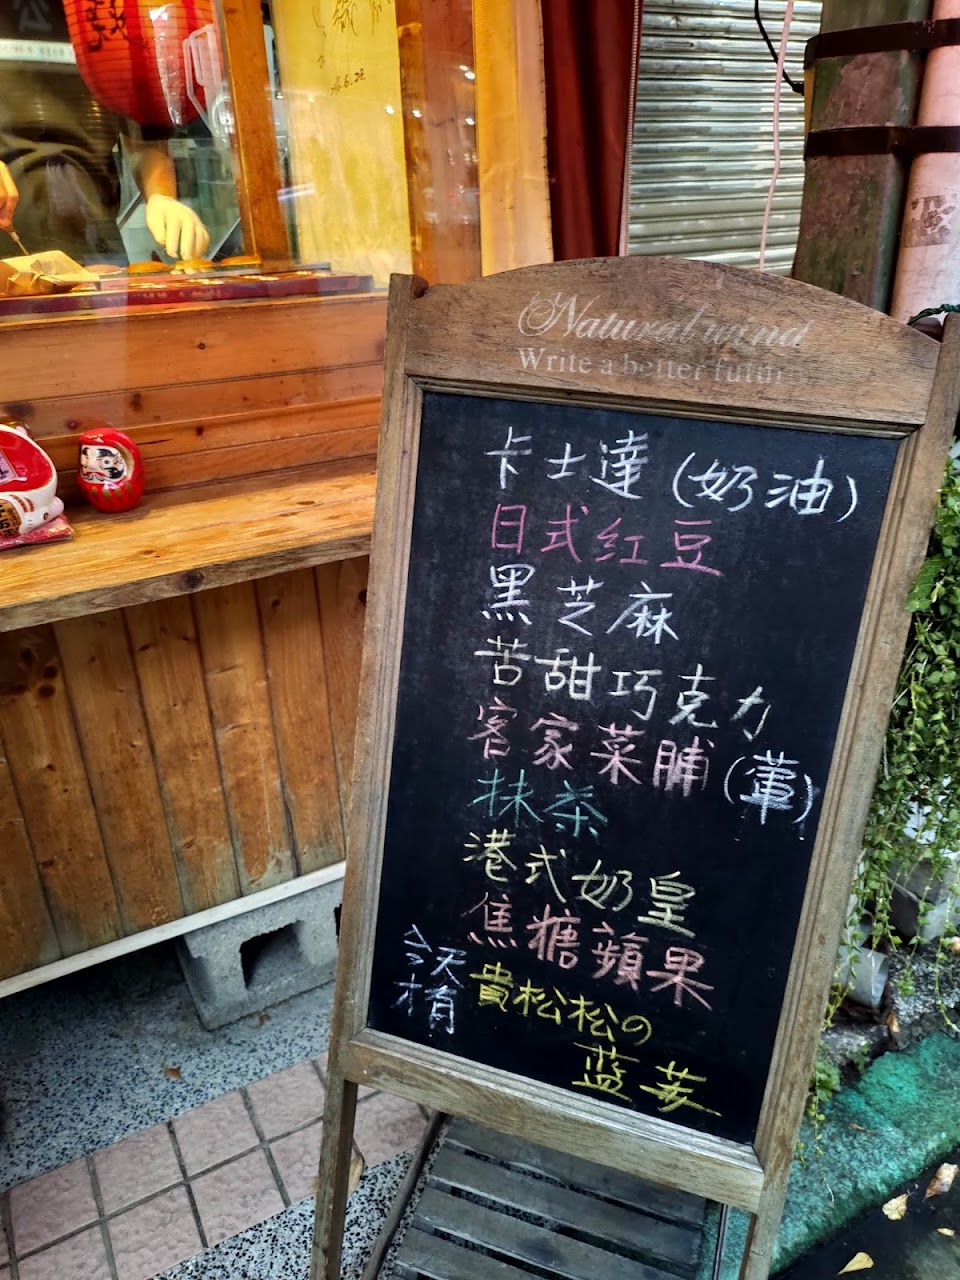 Natural wind
Write a better futur
卡士達(奶油)
日式紅豆
黑芝麻
苦甜巧克力
客家菜脯(葷)
抹茶
港式奶皇
焦糖蘋果
今天
貴松松の
藍
16.6.28.